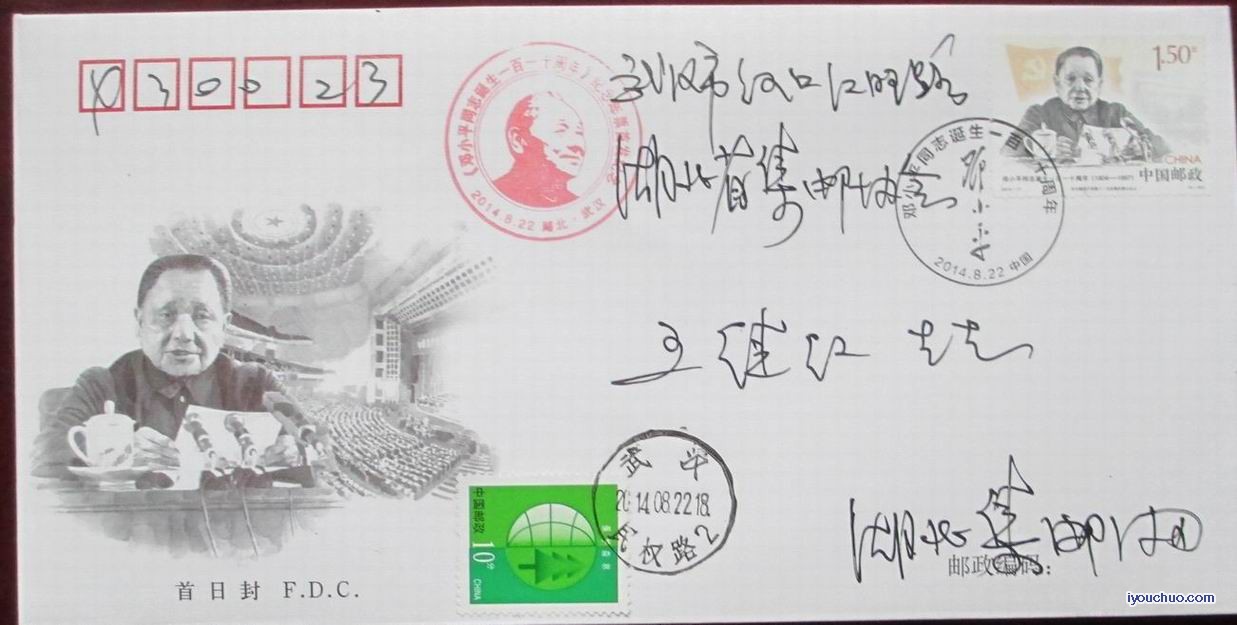 430023
武汉市汉口江旺路
湖北省集邮协会
王继红 同志
湖北集邮
邮政编码：
首日封 F.D.C.
《邓小平同志诞生一百一十周年》纪念邮票
2014.8.22 湖北·武汉
1.50元
CHINA
中国邮政
邓小平同志诞生一百一十周年
邓小平
2014.8.22 中国
邓小平同志诞生一百一十周年(1904—1997)
武
2014.08.22.18
权路2
中国邮政
10分
CHINA
iyouchuo.com